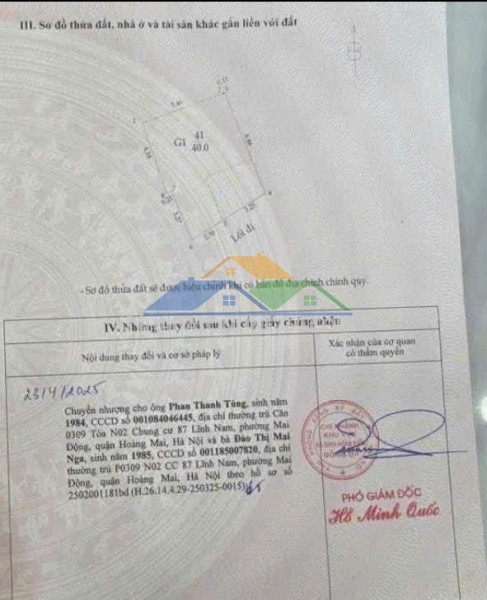 III. Sơ đồ thửa đất, nhà ở và tài sản khác gắn liền với đất
B
G1
41
40.0
Lối đi
- Sơ đồ thửa đất sẽ được hiệu chỉnh khi có bản đồ địa chính chính quy.
IV. Những thay đổi sau khi cấp giấy chứng nhận
Nội dung thay đổi và cơ sở pháp lý
Xác nhận của cơ quan
có thẩm quyền
23/4/2025
Chuyển nhượng cho ông Phan Thanh Tùng, sinh năm
1984, CCCD số 001084046445, địa chỉ thường trú Căn
0309 Tòa N02 Chung cư 87 Lĩnh Nam, phường Mai
Động, quận Hoàng Mai, Hà Nội và bà Đào Thị Mai
Nga, sinh năm 1985, CCCD số 001185007820, địa chỉ
thường trú P0309 N02 CC 87 Lĩnh Nam, phường Mai
Động, quận Hoàng Mai, Hà Nội theo hồ sơ số
2502001181bd (H.26.14.4.29-250325-0015)
CHI NHÁNH
PHÓ GIÁM ĐỐC
Hồ Minh Quốc